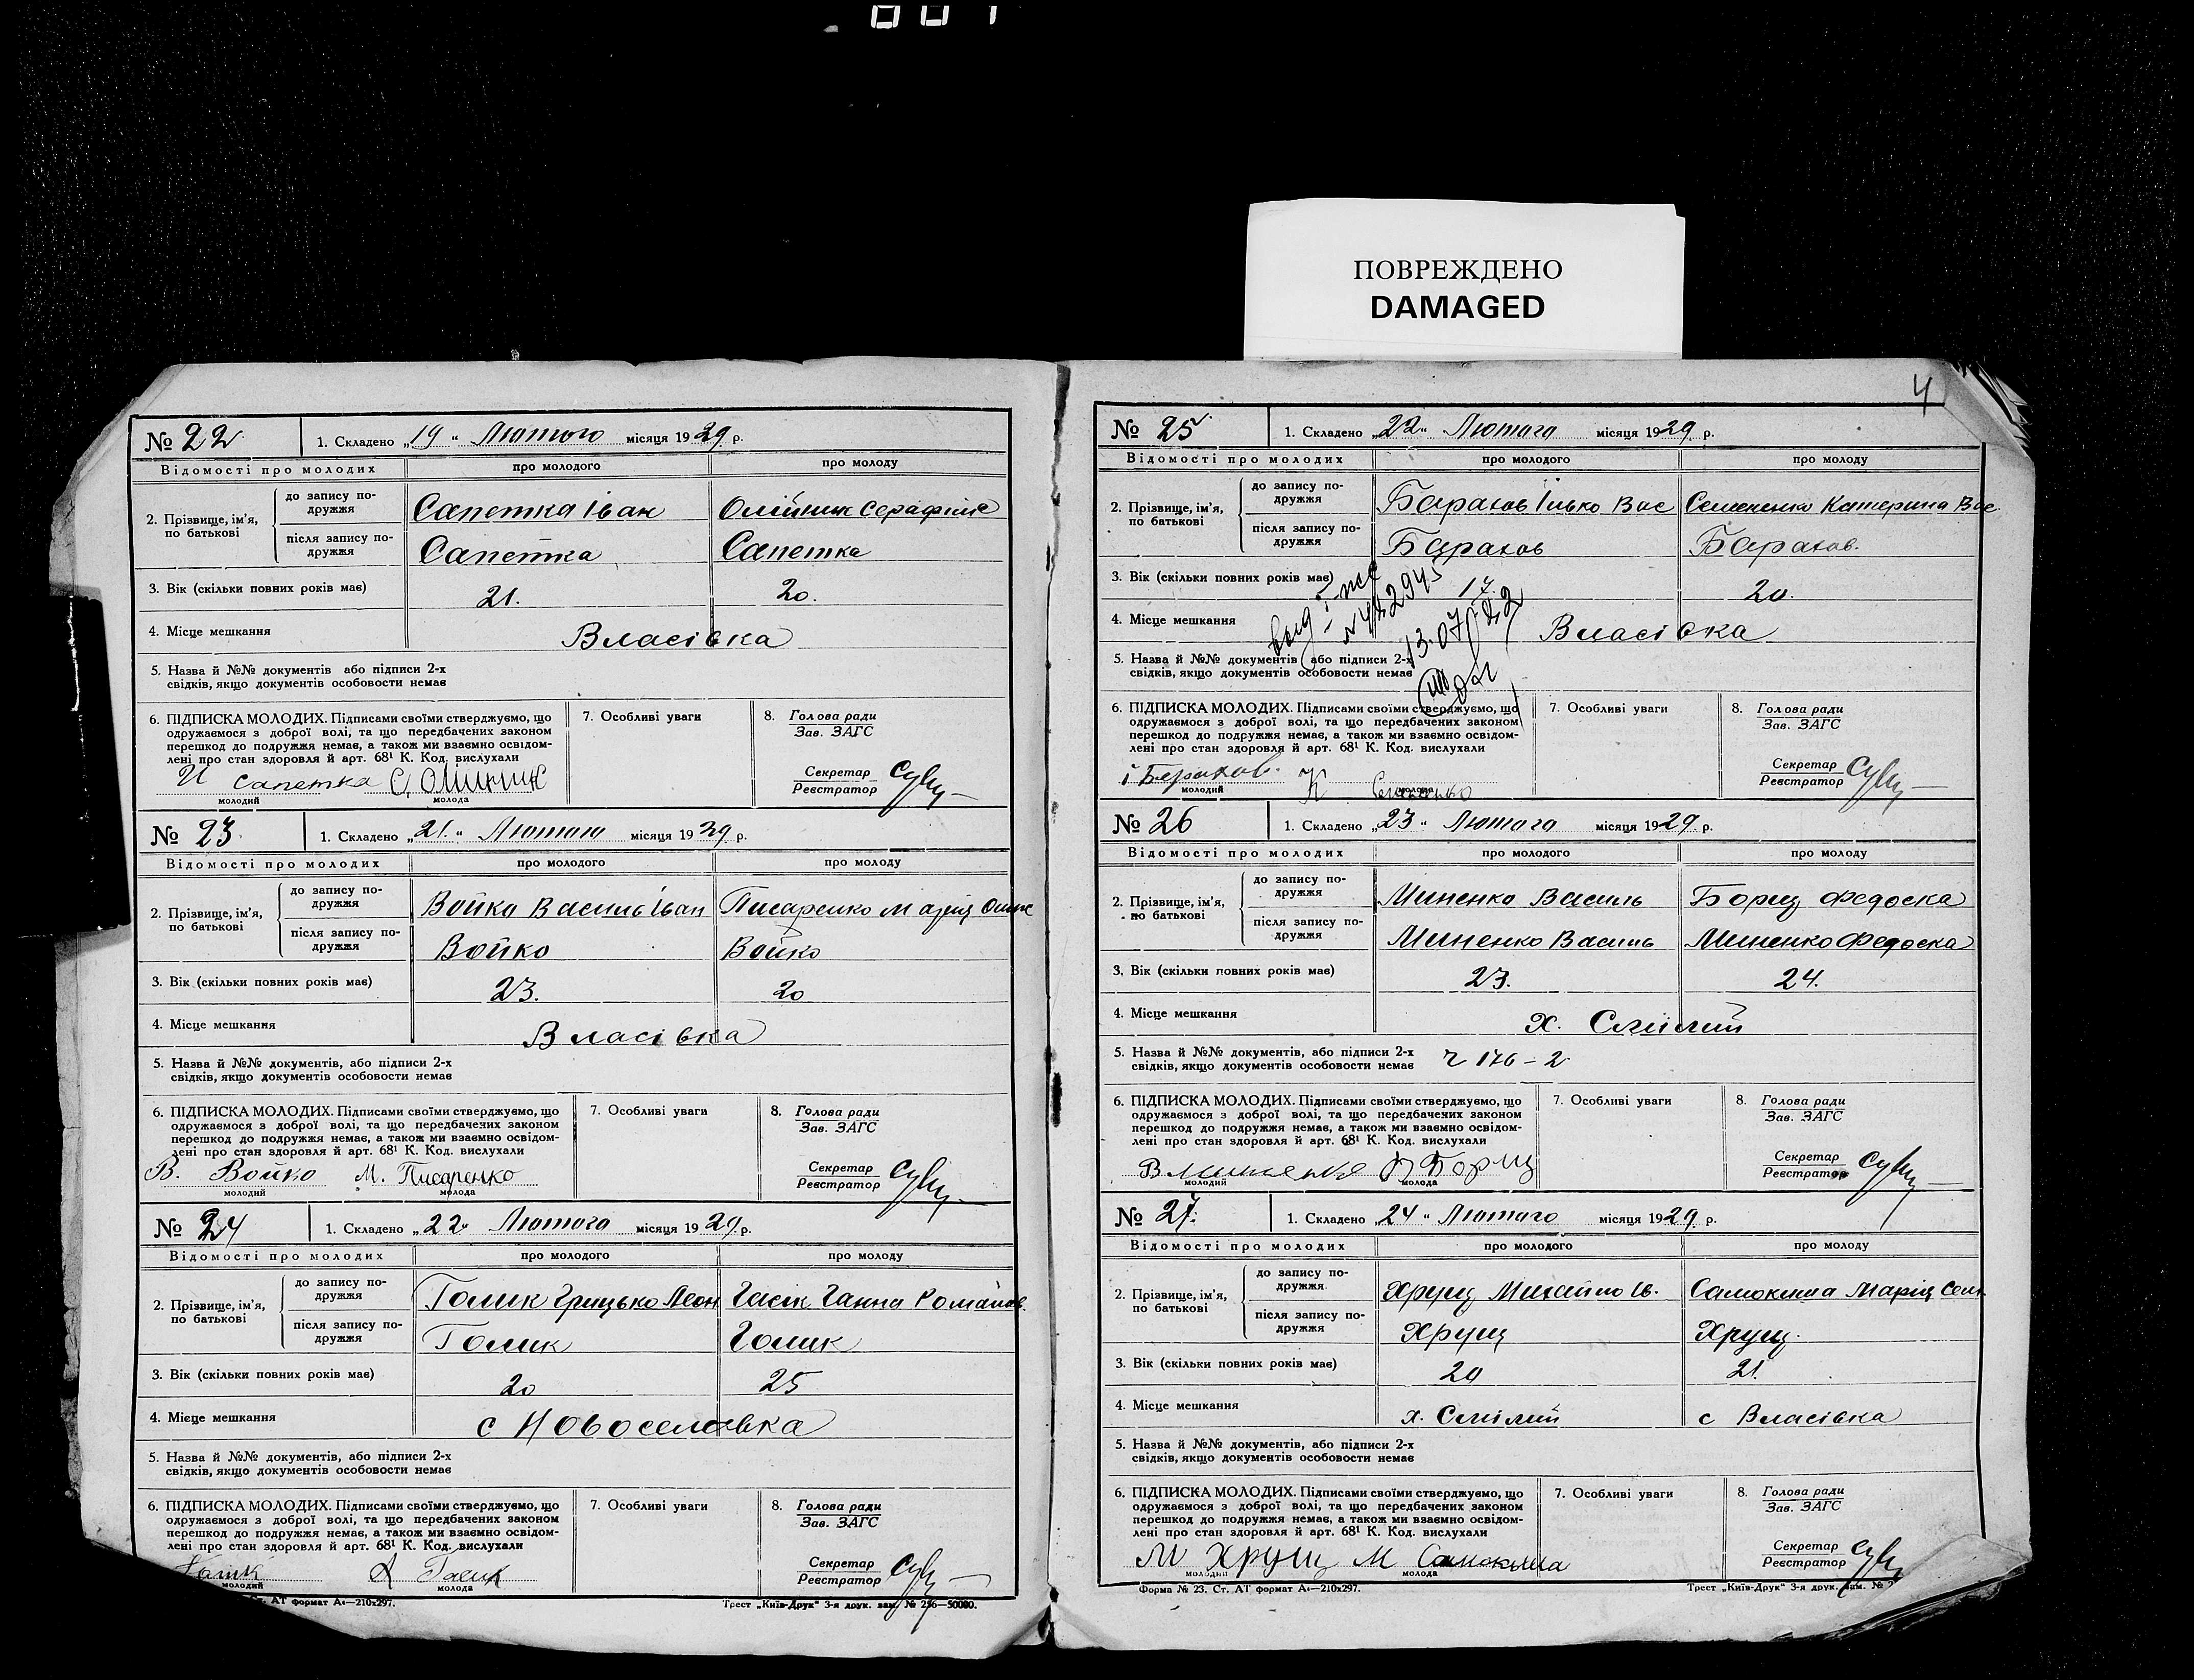 ПОВРЕЖДЕНО
DAMAGED
4
№ 22
1. Складено „19“ Лютого місяця 1929 р.
Відомості про молодих
про молодого
про молоду
2. Прізвище, ім'я, по батькові
до запису подружжя
Сапетка Іван
Олійник Серафіма
після запису подружжя
Сапетка
Сапетка
3. Вік (скільки повних років має)
21.
20.
4. Місце мешкання
Власівка
5. Назва й №№ документів або підписи 2-х
свідків, якщо документів особовости немає
6. ПІДПИСКА МОЛОДИХ. Підписами своїми стверджуємо, що
одружаємося з доброї волі, та що передбачених законом
перешкод до подружжя немає, а також ми взаємно освідом-
лені про стан здоровля й арт. 68¹ К. Код. вислухали
И Сапетка
молодий
молода
7. Особливі уваги
8. Голова ради
Зав. ЗАГС
Секретар
Реєстратор
№ 23
1. Складено „21.“ Лютого місяця 1929 р.
Відомості про молодих
про молодого
про молоду
2. Прізвище, ім'я, по батькові
до запису подружжя
Бойко Василь Іван
Писаренко Марія
після запису подружжя
Бойко
Бойко
3. Вік (скільки повних років має)
23.
20
4. Місце мешкання
Власівка
5. Назва й №№ документів, або підписи 2-х
свідків, якщо документів особовости немає
6. ПІДПИСКА МОЛОДИХ. Підписами своїми стверджуємо, що
одружаємося з доброї волі, та що передбачених законом
перешкод до подружжя немає, а також ми взаємно освідом-
лені про стан здоровля й арт. 68¹ К. Код. вислухали
В. Бойко М. Писаренко
молодий
молода
7. Особливі уваги
8. Голова ради
Зав. ЗАГС
Секретар
Реєстратор
№ 24
1. Складено „22“ Лютого місяця 1929 р.
Відомості про молодих
про молодого
про молоду
2. Прізвище, ім'я, по батькові
до запису подружжя
Голик Грицько Леон
Гасік Ганна Романов.
після запису подружжя
Голик
Голик
3. Вік (скільки повних років має)
20
25
4. Місце мешкання
с Новоселовка
5. Назва й №№ документів, або підписи 2-х
свідків, якщо документів особовости немає
6. ПІДПИСКА МОЛОДИХ. Підписами своїми стверджуємо, що
одружаємося з доброї волі, та що передбачених законом
перешкод до подружжя немає, а також ми взаємно освідом-
лені про стан здоровля й арт. 68¹ К. Код. вислухали
молодий
молода
7. Особливі уваги
8. Голова ради
Зав. ЗАГС
Секретар
Реєстратор
Ст. АТ формат А₄—210x297.
Трест „Київ-Друк“ 3-я друк. зам. № 256—50000.
№ 25
1. Складено „22“ Лютого місяця 1929 р.
Відомості про молодих
про молодого
про молоду
2. Прізвище, ім'я, по батькові
до запису подружжя
Барахов Ілько Вас
Семененко Катерина Вас
після запису подружжя
Барахов
Барахов.
3. Вік (скільки повних років має)
17.
20.
4. Місце мешкання
Власівка
13.07
5. Назва й №№ документів або підписи 2-х
свідків, якщо документів особовости немає
6. ПІДПИСКА МОЛОДИХ. Підписами своїми стверджуємо, що
одружаємося з доброї волі, та що передбачених законом
перешкод до подружжя немає, а також ми взаємно освідом-
лені про стан здоровля й арт. 68¹ К. Код. вислухали
молодий
молода
7. Особливі уваги
8. Голова ради
Зав. ЗАГС
Секретар
Реєстратор
№ 26
1. Складено „23“ Лютого місяця 1929. р.
Відомості про молодих
про молодого
про молоду
2. Прізвище, ім'я, по батькові
до запису подружжя
Миненко Василь
Борщ Федоска
після запису подружжя
Миненко Василь
Миненко Федоска
3. Вік (скільки повних років має)
23.
24.
4. Місце мешкання
х. Смілий
5. Назва й №№ документів, або підписи 2-х
свідків, якщо документів особовости немає
176-2
6. ПІДПИСКА МОЛОДИХ. Підписами своїми стверджуємо, що
одружаємося з доброї волі, та що передбачених законом
перешкод до подружжя немає, а також ми взаємно освідом-
лені про стан здоровля й арт. 68¹ К. Код. вислухали
Борщ
молодий
молода
7. Особливі уваги
8. Голова ради
Зав. ЗАГС
Секретар
Реєстратор
№ 27.
1. Складено „24“ Лютого місяця 1929. р.
Відомості про молодих
про молодого
про молоду
2. Прізвище, ім'я, по батькові
до запису подружжя
Хрущ Михайло Ів.
Самокиша Марія Сем.
після запису подружжя
Хрущ
Хрущ.
3. Вік (скільки повних років має)
20
21.
4. Місце мешкання
х. Смілий
с Власівка
5. Назва й №№ документів, або підписи 2-х
свідків, якщо документів особовости немає
6. ПІДПИСКА МОЛОДИХ. Підписами своїми стверджуємо, що
одружаємося з доброї волі, та що передбачених законом
перешкод до подружжя немає, а також ми взаємно освідом-
лені про стан здоровля й арт. 68¹ К. Код. вислухали
М Хрущ М Самокиша
молодий
молода
7. Особливі уваги
8. Голова ради
Зав. ЗАГС
Секретар
Реєстратор
Форма № 23. Ст. АТ формат А₄—210x297.
Трест „Київ-Друк“ 3-я друк. зам. № 2